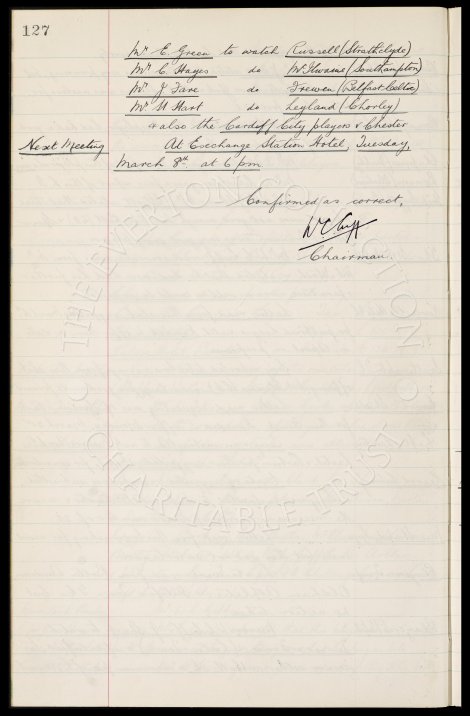 127
Mr E. Green to watch Russell (Strathclyde)
Mr C. Hayes do McIlwaine (Southampton)
Mr J. Tare do Trewen (Belfast Celtic)
Mr H. Hart do Leyland (Chorley)
& also the Cardiff City players & Chester
Next Meeting At Exchange Station Hotel, Tuesday,
March 8th at 6 pm.
Confirmed as correct,
W C Cuff
Chairman.
THE EVERTON COLLECTION
CHARITABLE TRUST